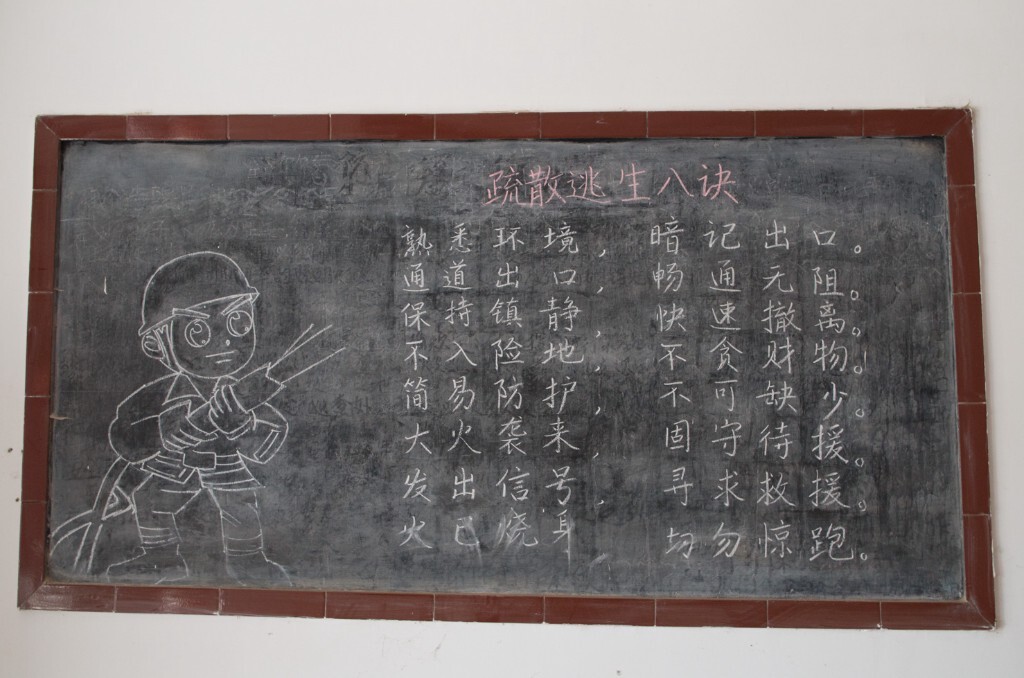 疏散逃生八诀
熟悉环境，暗记出口。
通道出口，畅通无阻。
保持镇静，快速撤离。
不入险地，不贪财物！
简易防护，不可缺少。
大火袭来，固守待援。
发出信号，寻求救援。
火已烧身，切勿惊跑。